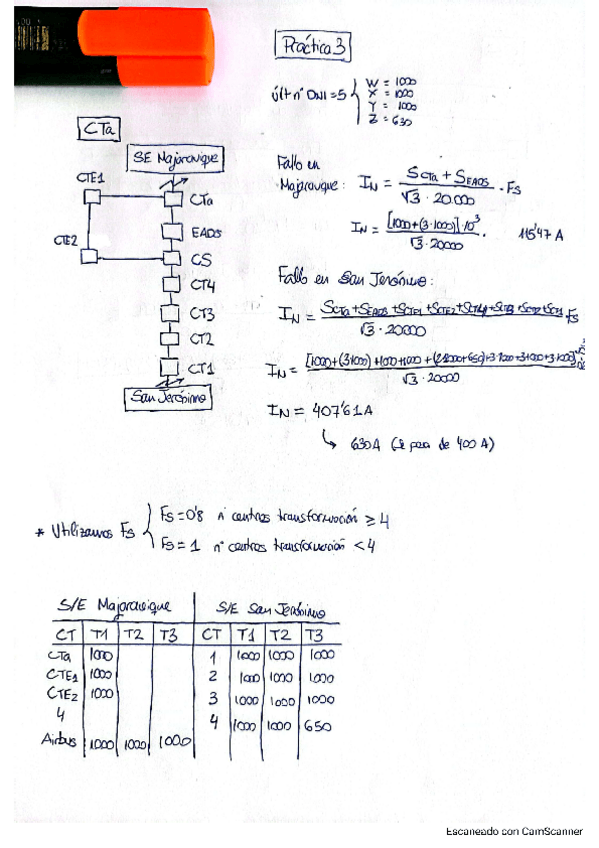 Práctica 3
últ nº DNI = 5 { W = 1000
X = 1000
Y = 1000
Z = 630
CTa
SE Majaravique
CTE1
CTa
EADS
CTE2
CS
CT4
CT3
CT2
CT1
San Jerónimo
Fallo en
Majaravique: IN = SCTa + SEADS / √3 · 20000 · FS
IN = [1000+(3·1000)]·10³ / √3 · 20000 · 115'47 A
Fallo en San Jerónimo:
IN = SCTa + SEADS + SCTE1 + SCTE2 + SCT4 + SCT3 + SCT2 + SCT1 / √3 · 20000 FS
IN = [1000+(3·1000)+1000+1000+(2·1000+650)+3·1000+3·1000+3·1000] / √3 · 20000
IN = 407'61 A
↳ 630A (se pasa de 400 A)
* Utilizamos FS { FS = 0'8 nº centros transformación ≥ 4
FS = 1 nº centros transformación < 4
S/E Majaravique S/E San Jerónimo
CT T1 T2 T3 CT T1 T2 T3
CTa 1000 1 1000 1000 1000
CTE1 1000 2 1000 1000 1000
CTE2 1000 3 1000 1000 1000
4 4 1000 1000 650
Airbus 1000 1000 1000
Escaneado con CamScanner